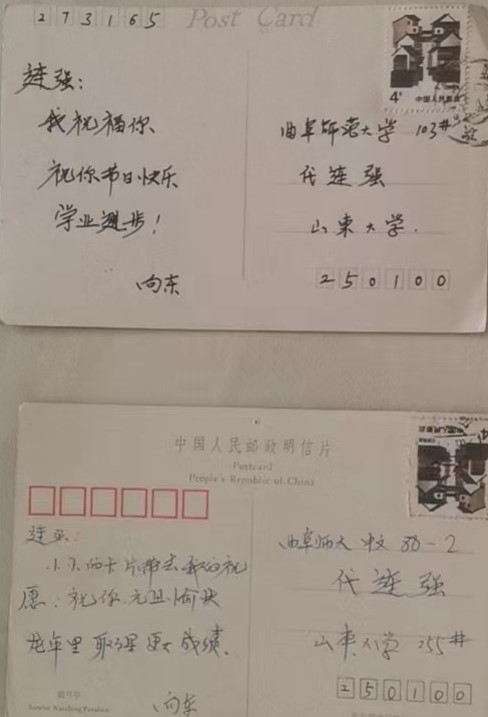 273165
Post Card
4分
中国人民邮政
连强:
我祝福你
祝你节日快乐
学业进步!
向东
曲阜师范大学 103#
代连强
山东大学.
250100
中国人民邮政明信片
Postcard
People's Republic of China
连强:
小小的卡片带去我的祝
愿:祝你元旦愉快
龙年里取得更大成绩.
向东
曲阜师大 中文 88-2
代连强
山东大学 255#
250100